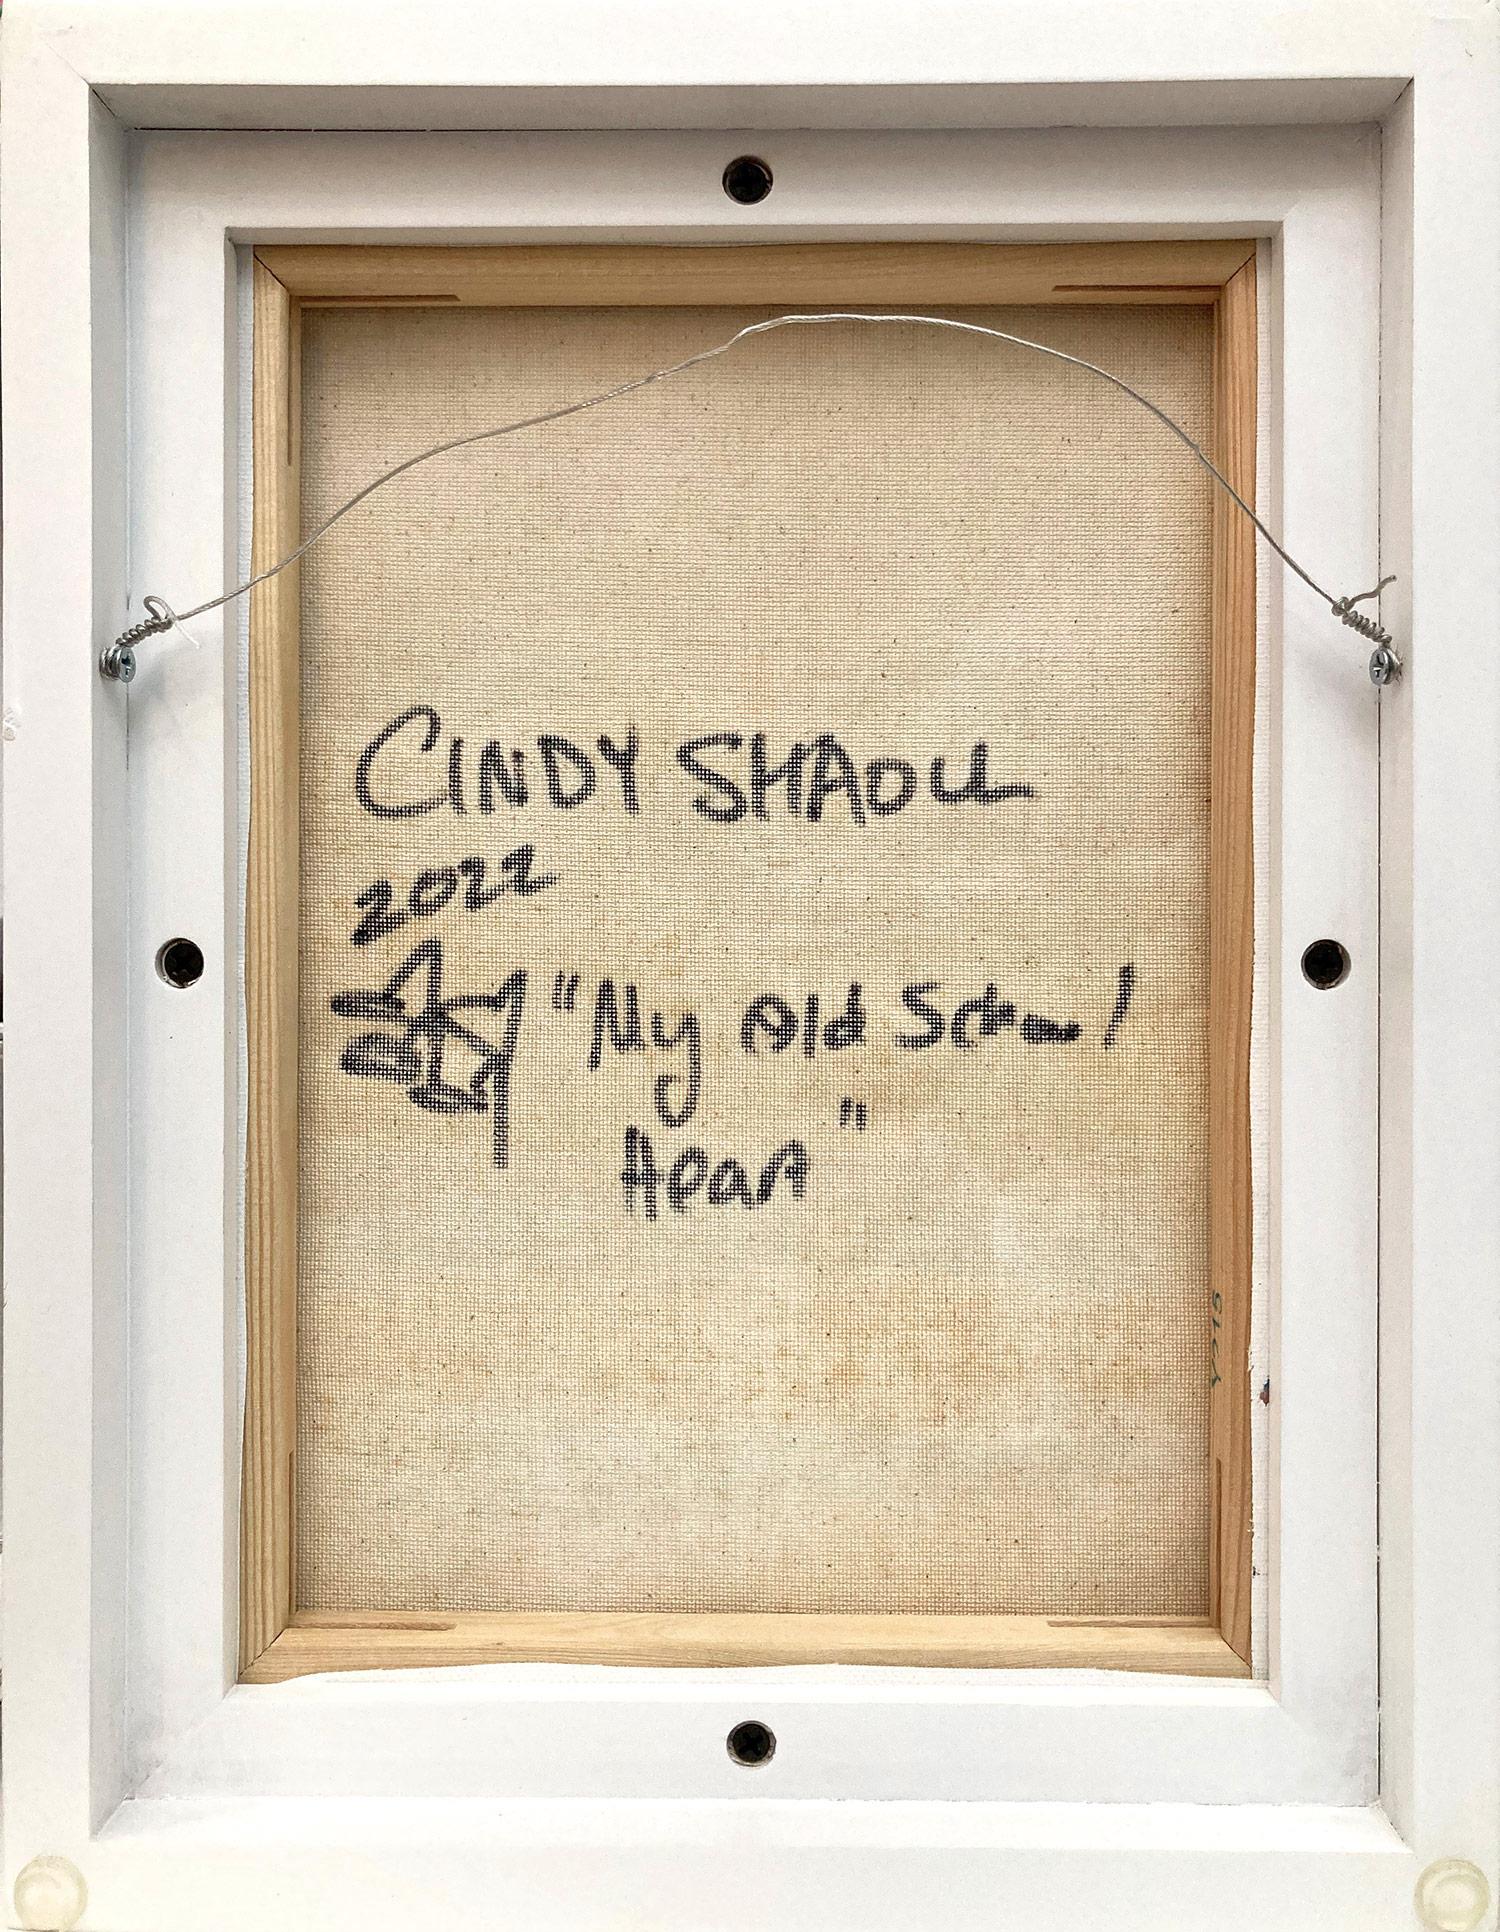 CINDY SHAOLL
2022
"My Old School
Heart"